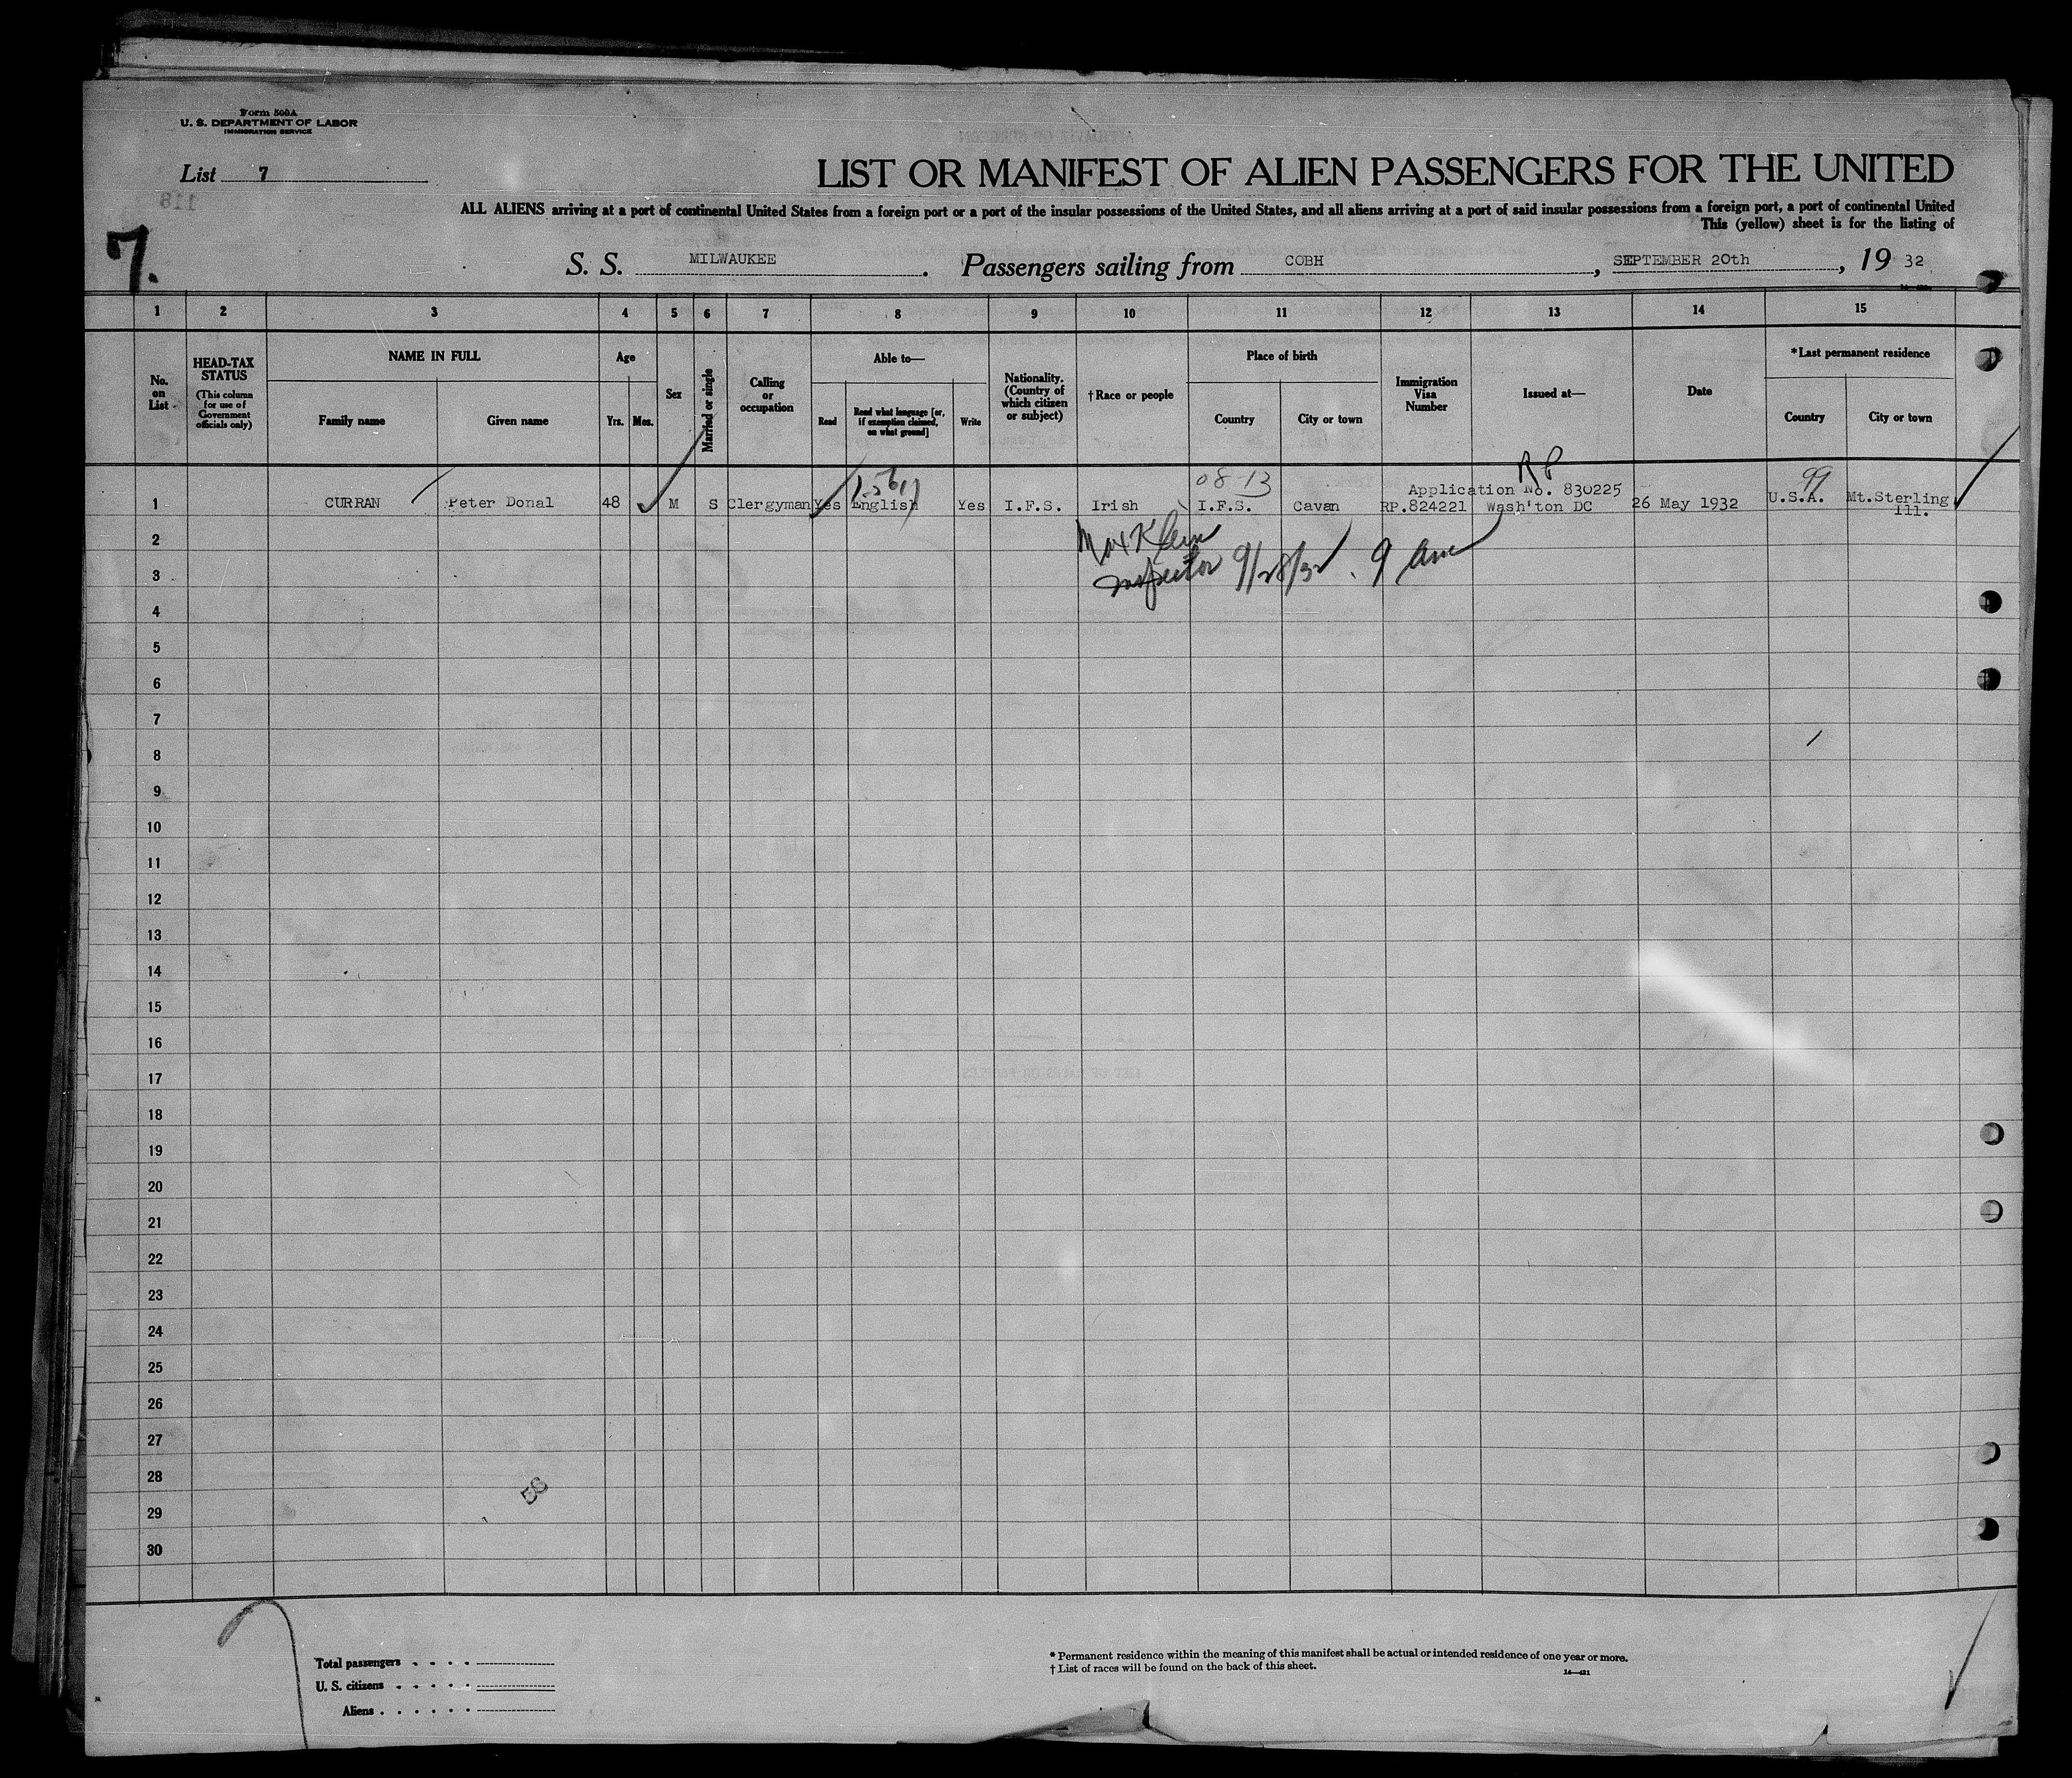 Form 500A
U. S. DEPARTMENT OF LABOR
IMMIGRATION SERVICE
List 7
118
LIST OR MANIFEST OF ALIEN PASSENGERS FOR THE UNITED
ALL ALIENS arriving at a port of continental United States from a foreign port or a port of the insular possessions of the United States, and all aliens arriving at a port of said insular possessions from a foreign port, a port of continental United
This (yellow) sheet is for the listing of
7.
S. S. MILWAUKEE. Passengers sailing from COBH, SEPTEMBER 20th, 19 32
1 2 3 4 5 6 7 8 9 10 11 12 13 14 15
No. on List
HEAD-TAX STATUS
(This column for use of Government officials only)
NAME IN FULL
Family name
Given name
Age
Yrs. Mos.
Sex
Married or single
Calling or occupation
Able to—
Read
Read what language [or, if exemption claimed, on what ground]
Write
Nationality. (Country of which citizen or subject)
†Race or people
Place of birth
Country
City or town
Immigration Visa Number
Issued at—
Date
*Last permanent residence
Country
City or town
RP
08 13
99
Application No. 830225
1 CURRAN Peter Donal 48 M S Clergyman Yes English Yes I.F.S. Irish I.F.S. Cavan RP.824221 Wash'ton DC 26 May 1932 U.S.A. Mt.Sterling
Ill.
2
Max Klein
3
Inspector 9/28/32. 9 am
4
5
6
7
8
9
10
11
12
13
14
15
16
17
18
19
20
21
22
23
24
25
26
27
28
58
29
30
Total passengers
U. S. citizens
Aliens
* Permanent residence within the meaning of this manifest shall be actual or intended residence of one year or more.
† List of races will be found on the back of this sheet.
14—421